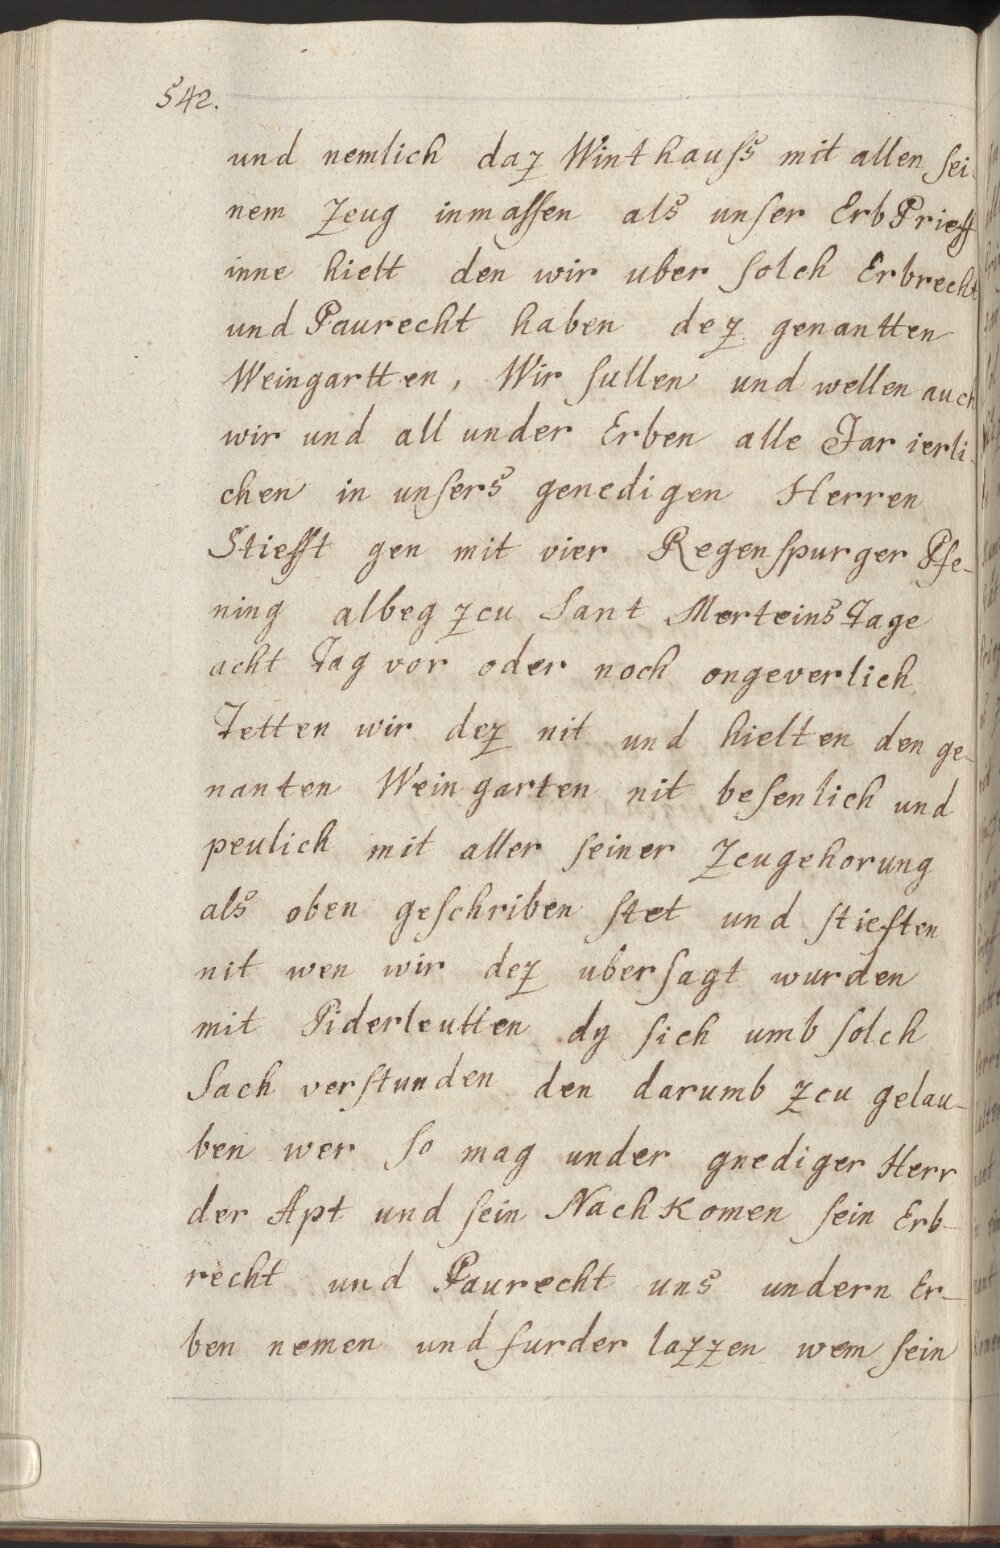 542.
und nemlich daz Winthauſs mit allen ſei-
nem Zeug inmaſſen als unſer ErbPrieff
inne hiett den wir uber ſolch Erbrecht
und Paurecht haben dez genantten
Weingartten, Wir ſullen und wellen auch
wir und all under Erben alle Jar ierli-
chen in unſers genedigen Herren
Stiefft gen mit vier Regenſpurger Pfe-
ning albeg zcu Sant Merteins Tage
acht Tag vor oder noch ongeverlich
Tetten wir dez nit und hielten den ge-
nanten Weingarten nit beſenlich und
peulich mit aller ſeiner Zcugehorung
als oben geſchriben ſtet und ſtieften
nit wen wir dez uberſagt wurden
mit Piderleutten dy ſich umb ſolch
Sach verſtunden den darumb zcu gelau-
ben wer ſo mag under gnediger Herr
der Apt und ſein Nachkomen ſein Erb-
recht und Paurecht uns undern Er-
ben nemen und furder lazzen wem ſein